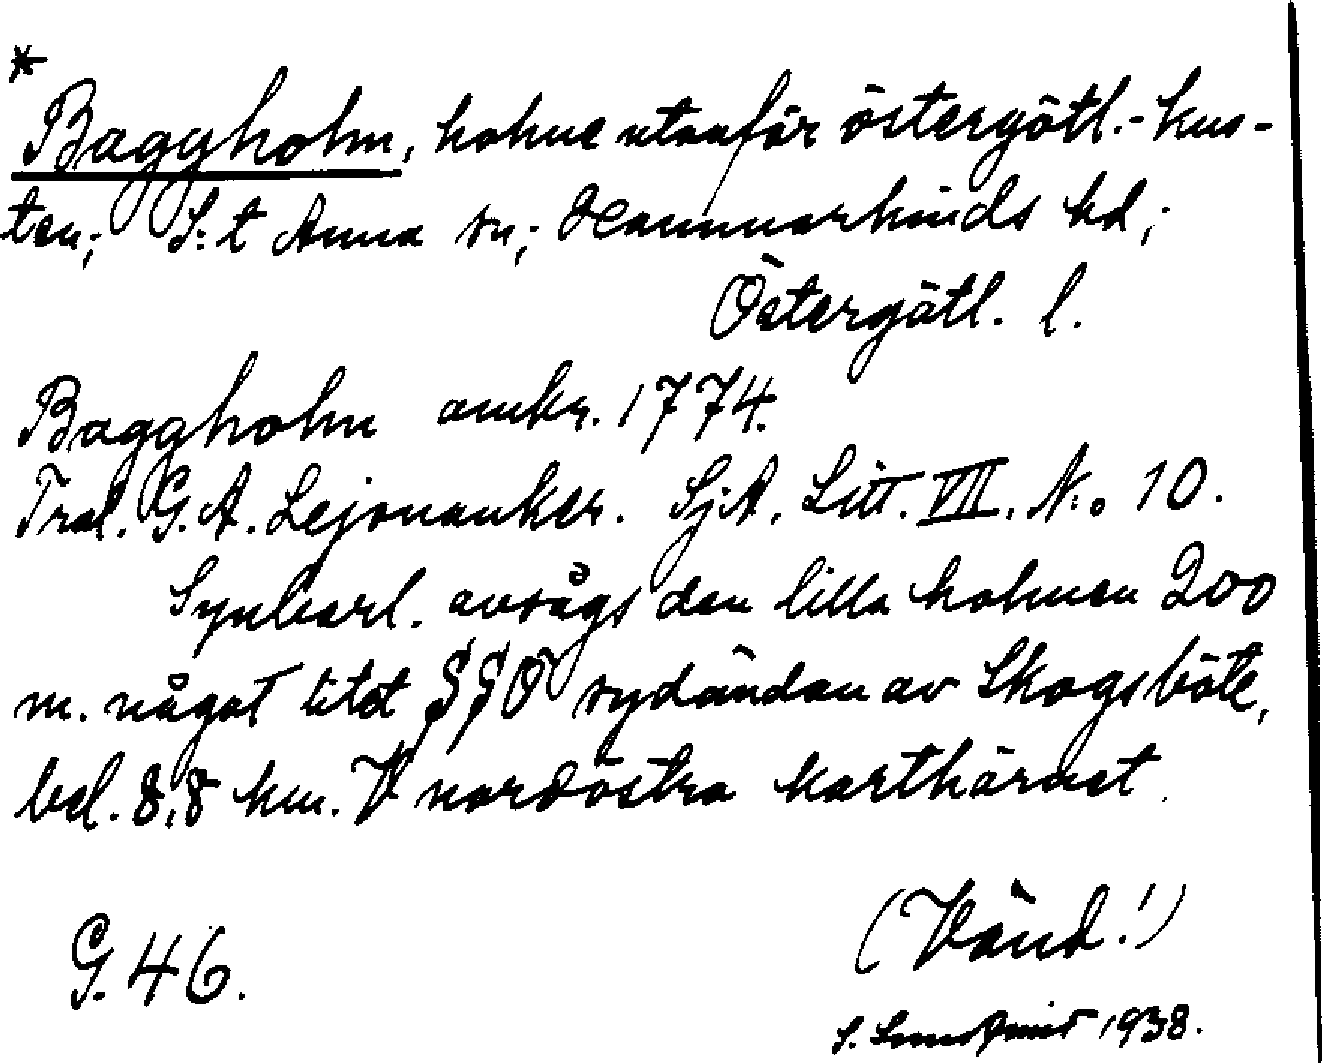 *
Baggholm, holme utanför östergötl.-kus-
ten; S:t Anna sn; Hammarkinds hd;
Östergötl. l.
Baggholm omkr. 1774.
Tral. G. A. Lejonanker. SjA. Litt. VII. N:o 10.
Synbarl. avsågs den lilla holmen 200
m. något litet SSO sydändan av Skogsböte,
bel. 8,8 km. V nordöstra karthörnet.
(Vänd!)
G. 46.
S. Lundqvist 1938.